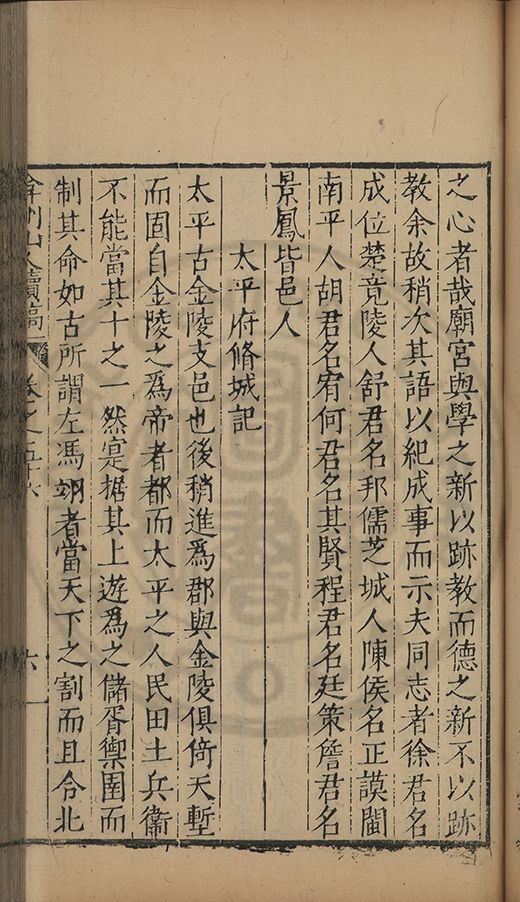 之心者哉廟宮與學之新以跡教而德之新不以跡
教余故稍次其語以紀成事而示夫同志者徐君名
成位楚竟陵人舒君名邦儒芝城人陳侯名正謨閩
南平人胡君名宥何君名其賢程君名廷策詹君名
景鳳皆邑人
太平府脩城記
太平古金陵支邑也後稍進爲郡與金陵俱倚天塹
而固自金陵之爲帝者都而太平之人民田土兵衞
不能當其十之一然寔據其上遊爲之儲胥禦圉而
制其命如古所謂左馮翊者當天下之割而且令北
弇州山人續稿
卷之五十六
六